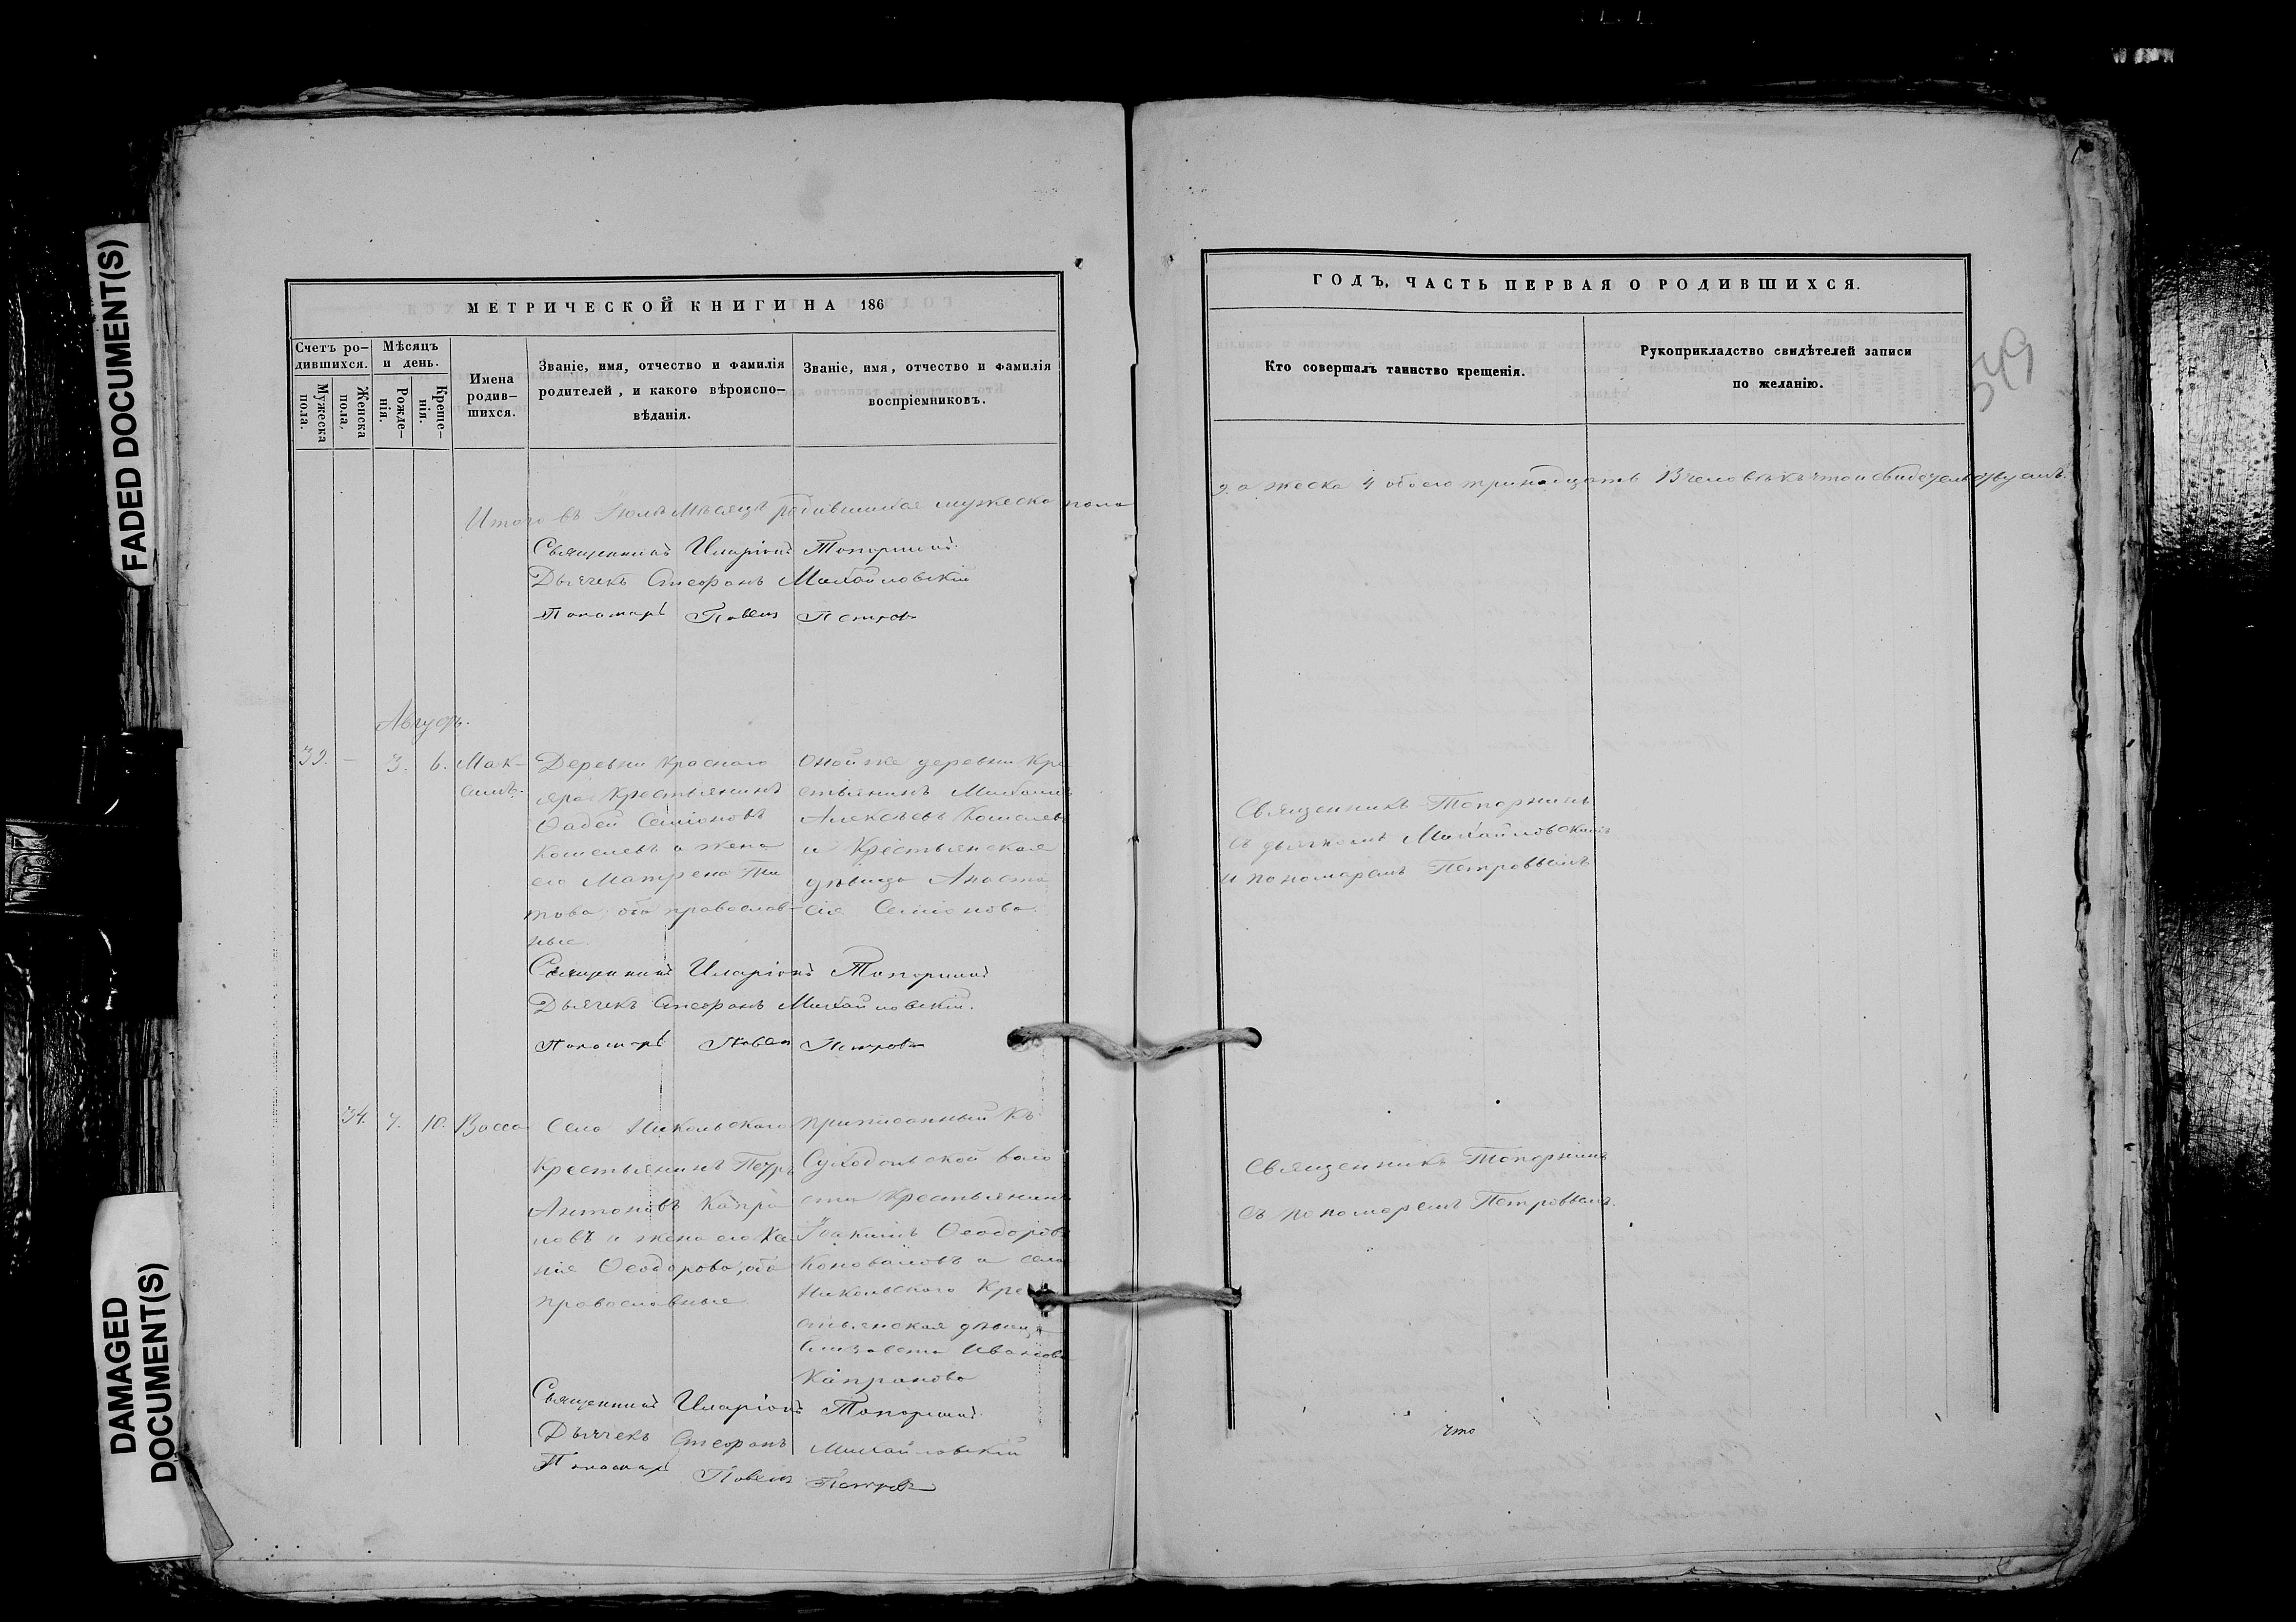 FADED DOCUMENT(S)
DAMAGED
DOCUMENT(S)
МЕТРИЧЕСКОЙ КНИГИ НА 186
Счетъ ро-
дившихся.
Мужеска
пола.
Женска
пола.
Мѣсяцъ
и день.
Рожде-
нія.
Креще-
нія.
Имена
родив-
шихся.
Званіе, имя, отчество и фамилія
родителей, и какого вѣроиспо-
вѣданія.
Званіе, имя, отчество и фамилія
воспріемниковъ.
Итого въ Іюлѣ Мѣсяцѣ родившихся мужеска пола
Священникъ Иларіонъ Топорнинъ
Дьячекъ Стефанъ Михайловскій
Пономарь Павелъ Петровъ
Августъ.
39. — 3. 6. Мак-
симъ.
Деревни Краснаго
яра Крестьянинъ
Ѳадей Семіоновъ
Кошелевъ и жена
его Матрена Ти
това, оба православ-
ные.
Оной же деревни Кре
стьянинъ Михаилъ
Алексѣевъ Кошелевъ
и Крестьянская
дѣвица Анаста
сія Семіонова.
Священникъ Иларіонъ Топорнинъ
Дьячекъ Стефанъ Михайловскій.
Пономарь Павелъ Петровъ
34. 7. 10. Васса
Села Никольскаго
Крестьянинъ Петръ
Антоновъ Капра
новъ и жена его Ксе
нія Ѳеодорова, оба
православные
приписанный къ
Суходольской воло
сти Крестьянинъ
Іоакимъ Ѳеодоровъ
Коноваловъ и села
Никольскаго Кре
стьянская дѣвица
Елизавета Иванова
Капранова
Священникъ Иларіонъ Топорнинъ.
Дьячекъ Стефанъ Михайловскій
Пономарь Павелъ Петровъ
ГОДЪ, ЧАСТЬ ПЕРВАЯ О РОДИВШИХСЯ.
Кто совершалъ таинство крещенія.
Рукоприкладство свидѣтелей записи
по желанію.
549
9. а жеска 4 обоего тринадцать 13 человѣкъ что и свидетельствуемъ.
Священникъ Топорнинъ
съ дьячкомъ Михайловскимъ
и пономаремъ Петровымъ
Священникъ Топорнинъ
съ пономаремъ Петровымъ.
что